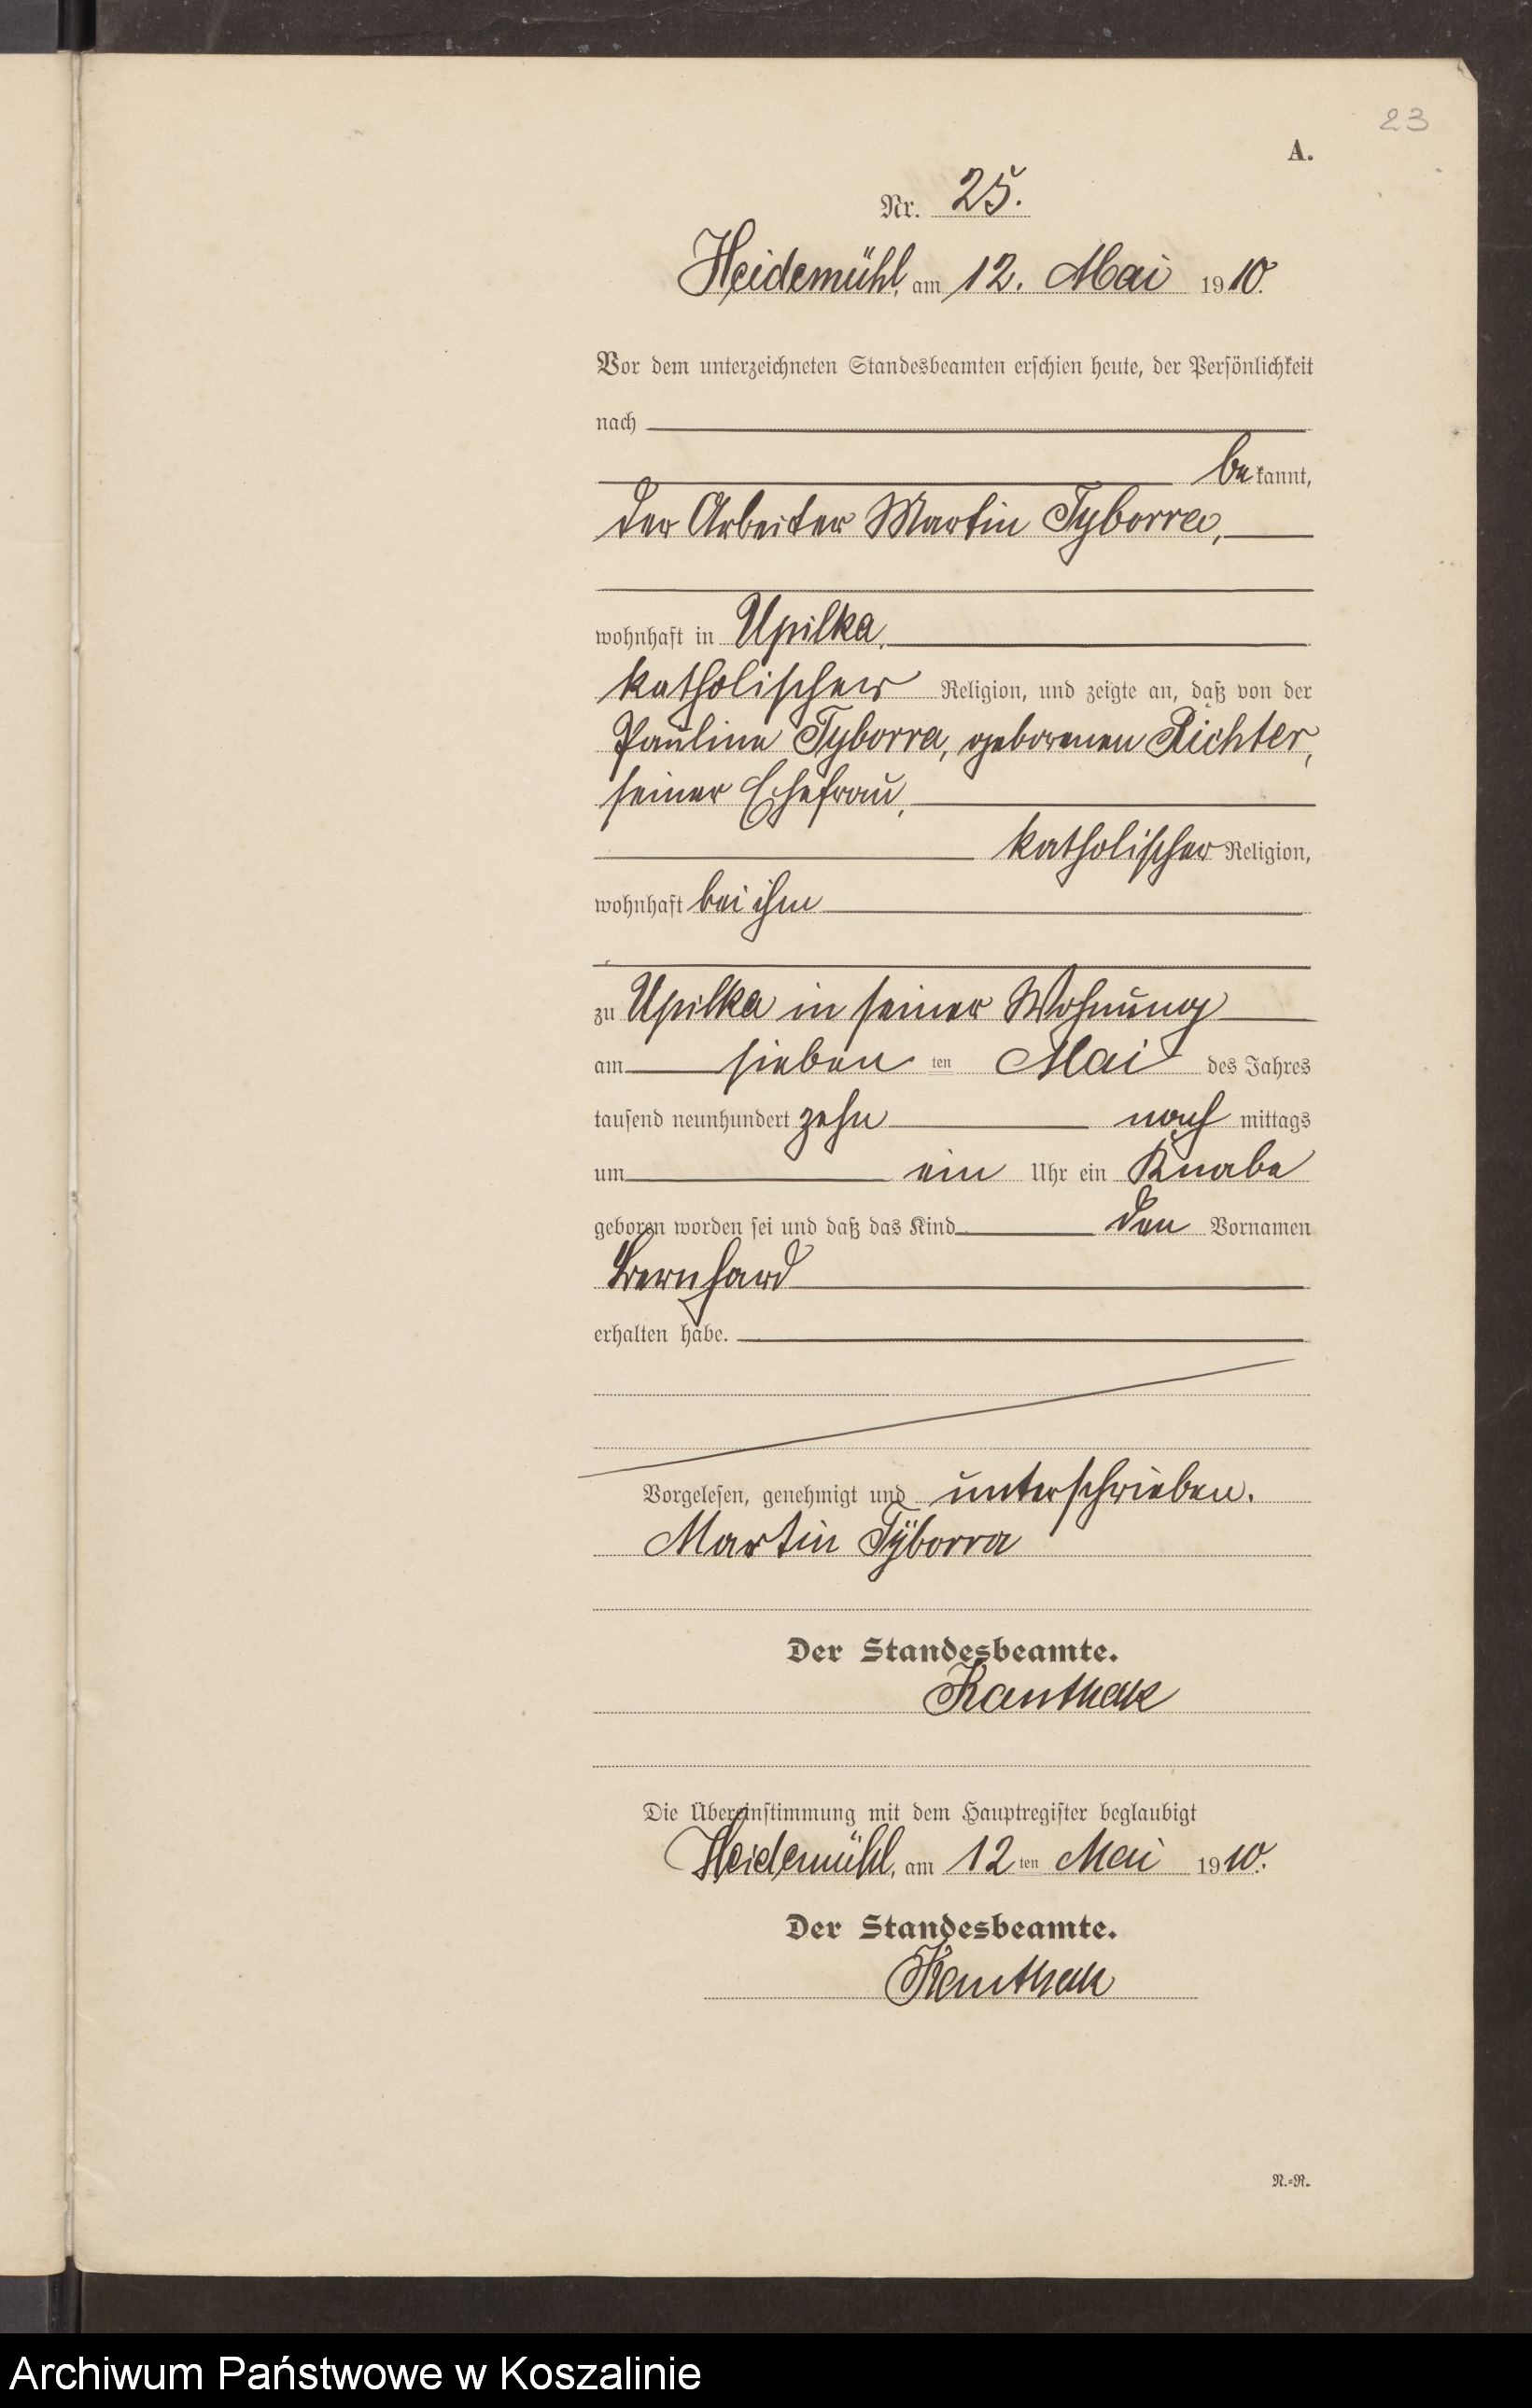 23
A.
Nr. 25.
Heidemühl, am 12. Mai 1910.
Vor dem unterzeichneten Standesbeamten erschien heute, der Persönlichkeit
nach
bekannt,
der Arbeiter Martin Tyborra,
wohnhaft in Upilka,
katholischer Religion, und zeigte an, daß von der
Pauline Tyborra, geborenen Richter,
seiner Ehefrau,
katholischer Religion,
wohnhaft bei ihm
zu Upilka in seiner Wohnung
am sieben ten Mai des Jahres
tausend neunhundert zehn nach mittags
um ein Uhr ein Knabe
geboren worden sei und daß das Kind den Vornamen
Bernhard
erhalten habe.
Vorgelesen, genehmigt und unterschrieben.
Martin Tÿborra
Der Standesbeamte.
Kanthak
Die Übereinstimmung mit dem Hauptregister beglaubigt
Heidemühl, am 12 ten Mai 1910.
Der Standesbeamte.
Kanthak
N.=R.
Archiwum Państwowe w Koszalinie